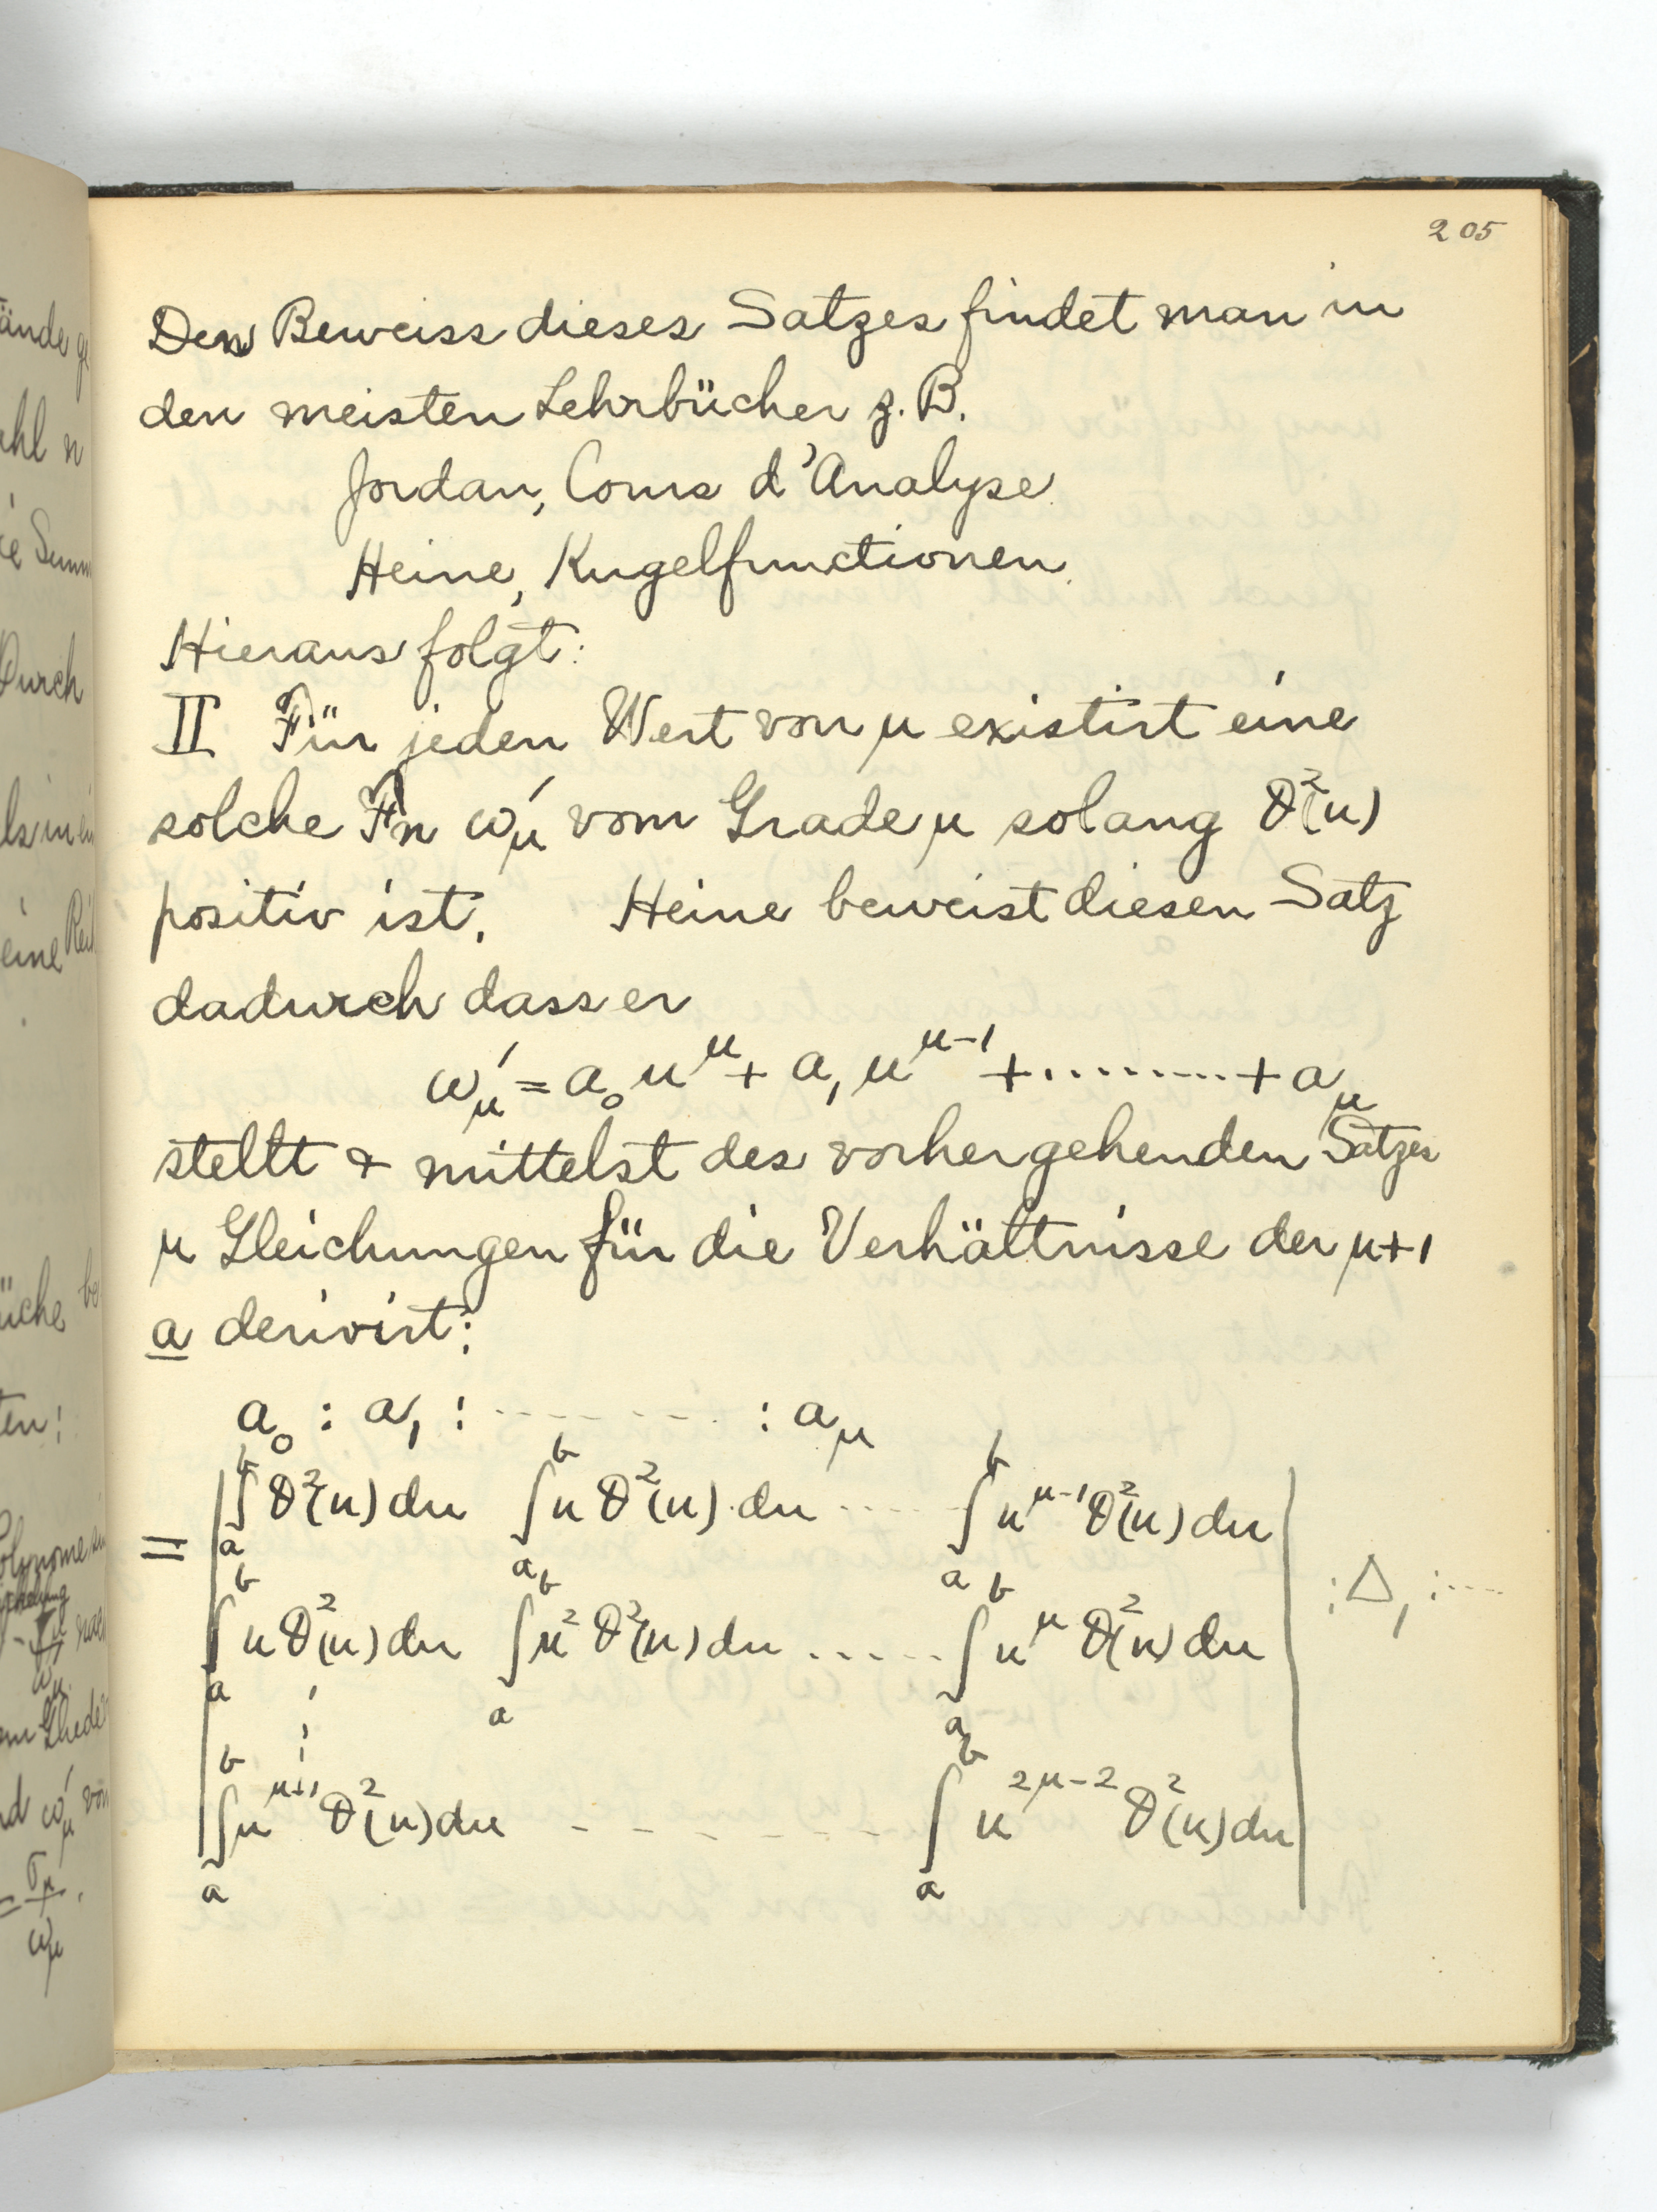 205
Den Beweiss dieses Satzes findet man in
den meisten Lehrbücher z.B.
Jordan, Cours d'Analyse
Heine, Kugelfunctionen.
Hieraus folgt:
II Für jeden Wert von μ existirt eine
solche Fn ω'_μ vom Grade μ solang ϑ²(u)
positiv ist. Heine beweist diesen Satz
dadurch dass er
ω'_μ = a₀ u^μ + a₁ u^{μ-1} + ......... + a_μ
stellt & mittelst des vorhergehenden Satzes
μ Gleichungen für die Verhältnisse der μ+1
a derivirt:
a₀ : a₁ : - - - - - - - - : a_μ
= | ∫_a^b ϑ²(u) du ∫_a^b u ϑ²(u) du ..... ∫_a^b u^{μ-1} ϑ²(u) du |
∫_a^b u ϑ²(u) du ∫_a^b u² ϑ²(u) du ..... ∫_a^b u^μ ϑ²(u) du | : Δ₁ : ----
∫_a^b u^{μ+1} ϑ²(u) du - - - - - - - ∫_a^b u^{2μ-2} ϑ²(u) du |